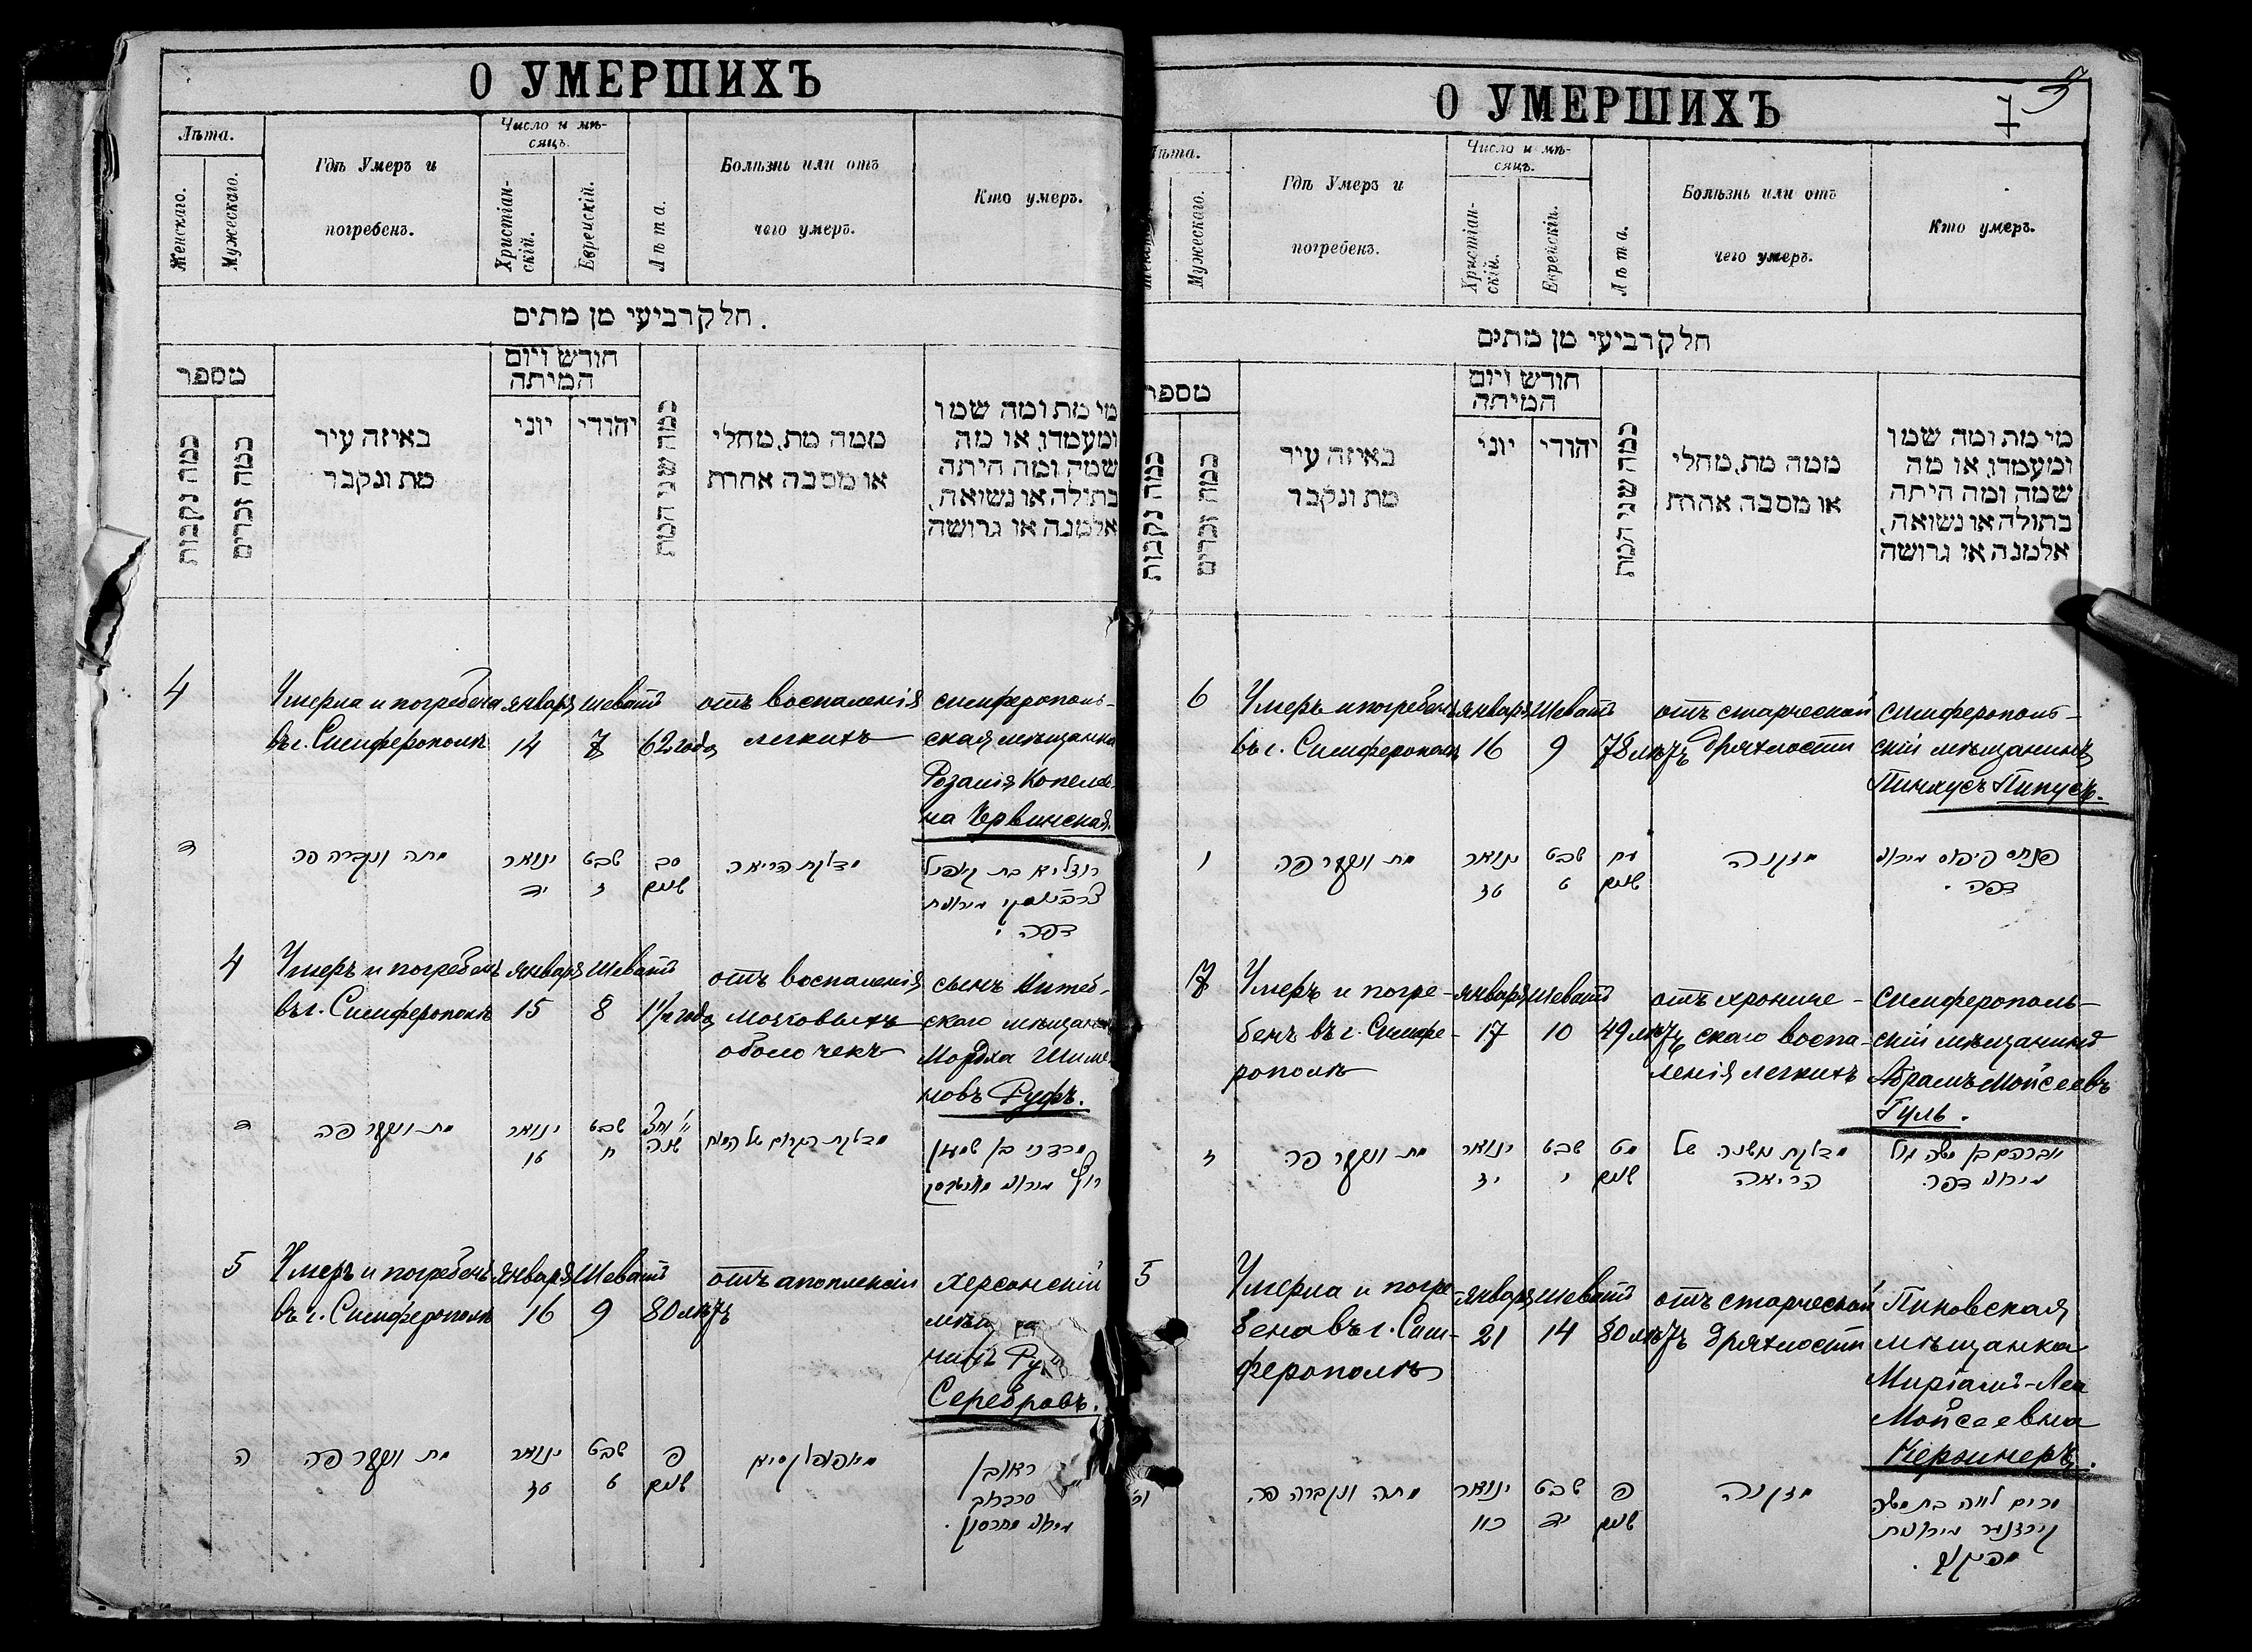 О УМЕРШИХЪ
Лѣта.
Женскаго.
Мужескаго.
Гдѣ Умеръ и
погребенъ.
Число и мѣ-
сяцъ.
Христіан-
скій.
Еврейскій.
Лѣта.
Болѣзнь или отъ
чего умеръ.
Кто умеръ.
חלק רביעי מן מתים
מספר
כמה נקבות
כמה זכרים
באיזה עיר
מת ונקבר
חודש ויום
המיתה
יוני
יהודי
כמה שני המת
ממה מת, מחלי
או מסבה אחרת
מי מת ומה שמו
ומעמדו, או מה
שמה ומה היתה
בתולה או נשואה,
אלמנה או גרושה
4
Умерла и погребена
въ г. Симферополѣ
января
14
Шеватъ
7
62 года
отъ воспаленія
легкихъ
симферополь-
ская мѣщанка
Розалія Копеле-
на Червинская.
ד
מתה ונקברה פה
ינואר
יד
שבט
ז
סב
שנים
מדלקת הריאה
רוזליא בת קאפיל
דפה.
4
Умеръ и погребенъ
въ г. Симферополѣ
января
15
Шеватъ
8
1 1/2 года
отъ воспаленія
мозковыхъ
оболочекъ
сынъ Витеб-
скаго мѣщанина
Мордха Шиме-
новъ Руфъ.
ד
מת ונקבר פה
ינואר
טו
שבט
ח
שנה
מדלקת הקרום של המוח
מרדכי בן שמעון
רוף
5
Умеръ и погребенъ
въ г. Симферополѣ
января
16
Шеватъ
9
80 лѣтъ
отъ апоплексіи
Херсонскій
Серебровъ.
ה
מת ונקבר פה
ינואר
טז
שבט
ט
פ
שנים
ראובן
סרברוב
О УМЕРШИХЪ
3
7
Лѣта.
Женскаго.
Мужескаго.
Гдѣ Умеръ и
погребенъ.
Число и мѣ-
сяцъ.
Христіан-
скій.
Еврейскій.
Лѣта.
Болѣзнь или отъ
чего умеръ.
Кто умеръ.
חלק רביעי מן מתים
מספר
כמה נקבות
כמה זכרים
באיזה עיר
מת ונקבר
חודש ויום
המיתה
יוני
יהודי
כמה שני המת
ממה מת, מחלי
או מסבה אחרת
מי מת ומה שמו
ומעמדו, או מה
שמה ומה היתה
בתולה או נשואה,
אלמנה או גרושה
6
Умеръ и погребенъ
въ г. Симферополѣ
января
16
Шеватъ
9
78 лѣтъ
отъ старческой
дряхлости
симферополь-
скій мѣщанинъ
Пинхусъ Пипусъ.
ו
מת ונקבר פה
ינואר
טז
שבט
ט
עח
שנים
מזקנה
פנחס פיפוס
דפה.
7
Умеръ и погре-
бенъ въ г. Симфе-
рополѣ
января
17
Шеватъ
10
49 лѣтъ
отъ хрониче-
скаго воспа-
ленія легкихъ
симферополь-
скій мѣщанинъ
Абрамъ Мойсеевъ
Гуль.
ז
מת ונקבר פה
ינואר
יז
שבט
י
מט
שנים
מדלקת
הריאה
אברהם בן משה גול
דפה.
5
Умерла и погре-
бена въ г. Сим-
ферополѣ
января
21
Шеватъ
14
80 лѣтъ
отъ старческой
дряхлости
Пиновская
мѣщанка
Миріамъ-Леа
Мойсеевна
Керзнеръ.
מתה ונקברה פה
ינואר
כא
שבט
יד
פ
שנים
מזקנה
מרים לאה בת משה